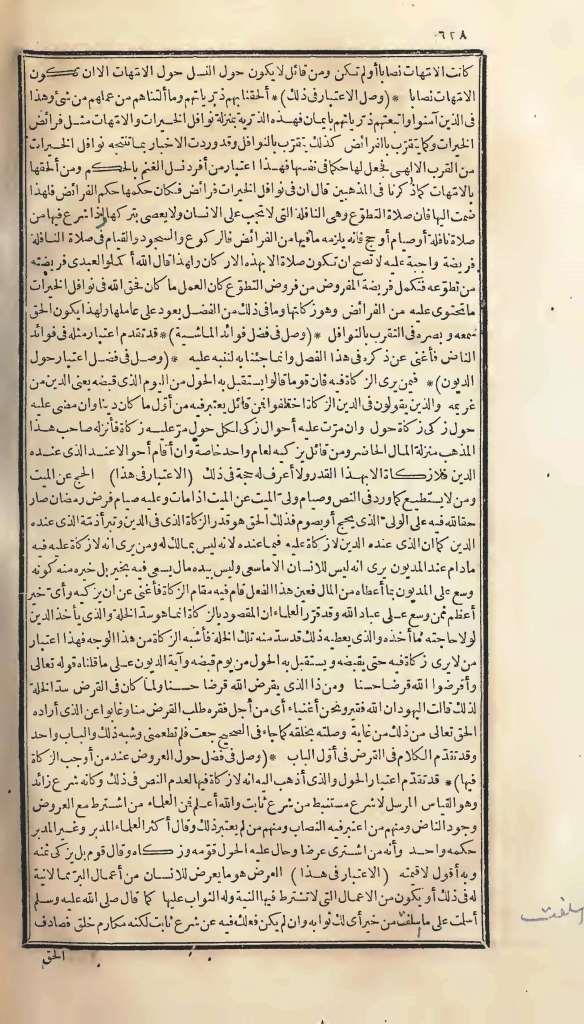 ٦٢٨
كانت الامّهات نصابا أولم تكن ومن قائل لا يكون حول النسل حول الامّهات الا ان تكون
الامّهات نصابا *(وصل الاعتبار فى ذلك)* ألحقنا بهم ذرّياتهم وما ألتناهم من عملهم من شئ وهذا
فى الذين آمنوا واتبعتهم ذرّياتهم بايمان فهذه الذرّية بمنزلة نوافل الخيرات والامّهات مثل فرائض
الخيرات وكما يتقرّب بالفرائض كذلك يتقرّب بالنوافل وقد وردت الاخبار بما تنتجه نوافل الخيرات
من القرب الالهىّ فجعل لها حكما فى نفسها فهذا اعتبار من أفرد نسل الغنم بالحكم ومن ألحقها
بالامّهات كما ذكرنا فى المذهبين قال ان فى نوافل الخيرات فرائض فكان حكمها حكم الفرائض فلهذا
ضمت اليها فان صلاة التطوّع وهى النافلة التى لا تجب على الانسان ولا يعصى بتركها اذا شرع فيها من
صلاة نافلة أو صيام أو حج فانه يلزمه ما فيها من الفرائض فالركوع والسجود والقيام فى صلاة النافلة
فريضة واجبة عليه لا تصح ان تكون صلاة الا بهذه الاركان ولهذا قال الله أكملوا لعبدى فريضته
من تطوّعه فتكمل فريضة المفروض من فروض التطوّع كان العمل ما كان فحق الله فى نوافل الخيرات
ما تحتوى عليه من الفرائض وهو زكاتها وما فى ذلك من الفضل يعود على عاملها ولهذا يكون الحق
سمعه وبصره فى التقرب بالنوافل *(وصل فى فضل فوائد الماشية)* قد تقدم اعتبار مثله فى فوائد
الناض فأغنى عن ذكره فى هذا الفصل وانما جئنا به لننبه عليه *(وصل فى فضل اعتبار حول
الديون)* فيمن يرى الزكاة فيه فان قوما قالوا يستقبل به الحول من اليوم الذى قبضه يعنى الدين من
غريمه والذين يقولون فى الدين الزكاة اختلفوا فمن قائل يعتبر فيه من أوّل ما كان دينا وان مضى عليه
حول زكى زكاة حول وان مرّت عليه أحوال زكى لكل حول مرّ عليه زكاة فأنزله صاحب هذا
المذهب منزلة المال الحاضر ومن قائل يزكيه لعام واحد خاصة وان أقام أحوالا عند الذى عنده
الدين فلا زكاة الا بهذا القدر ولا أعرف له حجة فى ذلك (الاعتبار فى هذا) الحج عن الميت
ومن لا يستطيع كما ورد فى النص وصيام ولىّ الميت عن الميت اذا مات وعليه صيام فرض رمضان صار
حقا لله فيه على الولىّ الذى يحج أو يصوم فذلك الحق هو قدر الزكاة الذى فى الدين وتبرأ ذمّة الذى عنده
الدين كما ان الذى عنده الدين لا زكاة عليه فيما عنده لانه ليس بمالك له ومن يرى انه لا زكاة عليه فيه
مادام عند المديون يرى انه ليس للانسان الا ما سعى وليس بيده مال يسعى فيه بخير بل خيره منه كونه
وسع على المديون بما أعطاه من المال فعين هذا الفعل قام فيه مقام الزكاة فأغنى عن ان يزكيه وأى خير
أعظم ممن وسع على عباد الله وقد قرّر العلماء ان المقصود بالزكاة انما هو سدّ الخلة والذى يأخذ الدين
لولا حاجته ما أخذه والذى يعطيه ذلك قد سدّ منه تلك الخلة فأشبه الزكاة من هذا الوجه فهذا اعتبار
من لا يرى زكاة فيه حتى يقبضه ويستقبل به الحول من يوم قبضه وآية الديون على ما قلناه قوله تعالى
وأقرضوا الله قرضا حسنا ومن ذا الذى يقرض الله قرضا حسنا ولما كان فى القرض سدّ الخلة
لذلك قالت اليهود ان الله فقير ونحن أغنياء أى من أجل فقره طلب القرض منا وغابوا عن الذى أراده
الحق تعالى من ذلك من غاية وصلته بخلقه كما جاء فى الصحيح جعت فلم تطعمنى وشبه ذلك والباب واحد
وقد تقدّم الكلام فى القرض فى أوّل الباب *(وصل فى فضل حول العروض عند من أوجب الزكاة
فيها)* قد تقدّم اعتبار الحول والذى أذهب اليه انه لا زكاة فيها لعدم النص فى ذلك وكانه شرع زائد
وهو القياس المرسل لا شرع مستنبط من شرع ثابت والله أعلم فمن العلماء من اشترط مع العروض
وجود الناض ومنهم من اعتبر فيه النصاب ومنهم من لم يعتبر ذلك وقال أكثر العلماء المدير وغير المدير
حكمه واحد وأنه من اشترى عرضا وحال عليه الحول قوّمه وزكاه وقال قوم بل يزكى ثمنه
وبه أقول لا قيمته (الاعتبار فى هذا) العرض هو ما يعرض للانسان من أعمال البرّ مما لا نية
له فى ذلك أو يكون من الاعمال التى لا تشترط فيها النية وله الثواب عليها كما قال صلى الله عليه وسلم
أسلمت على ما سلفت من خير أى لك ثوابه وان لم يكن فعلك فيه عن شرع ثابت لكنه مكارم خلق فصادف
الحق